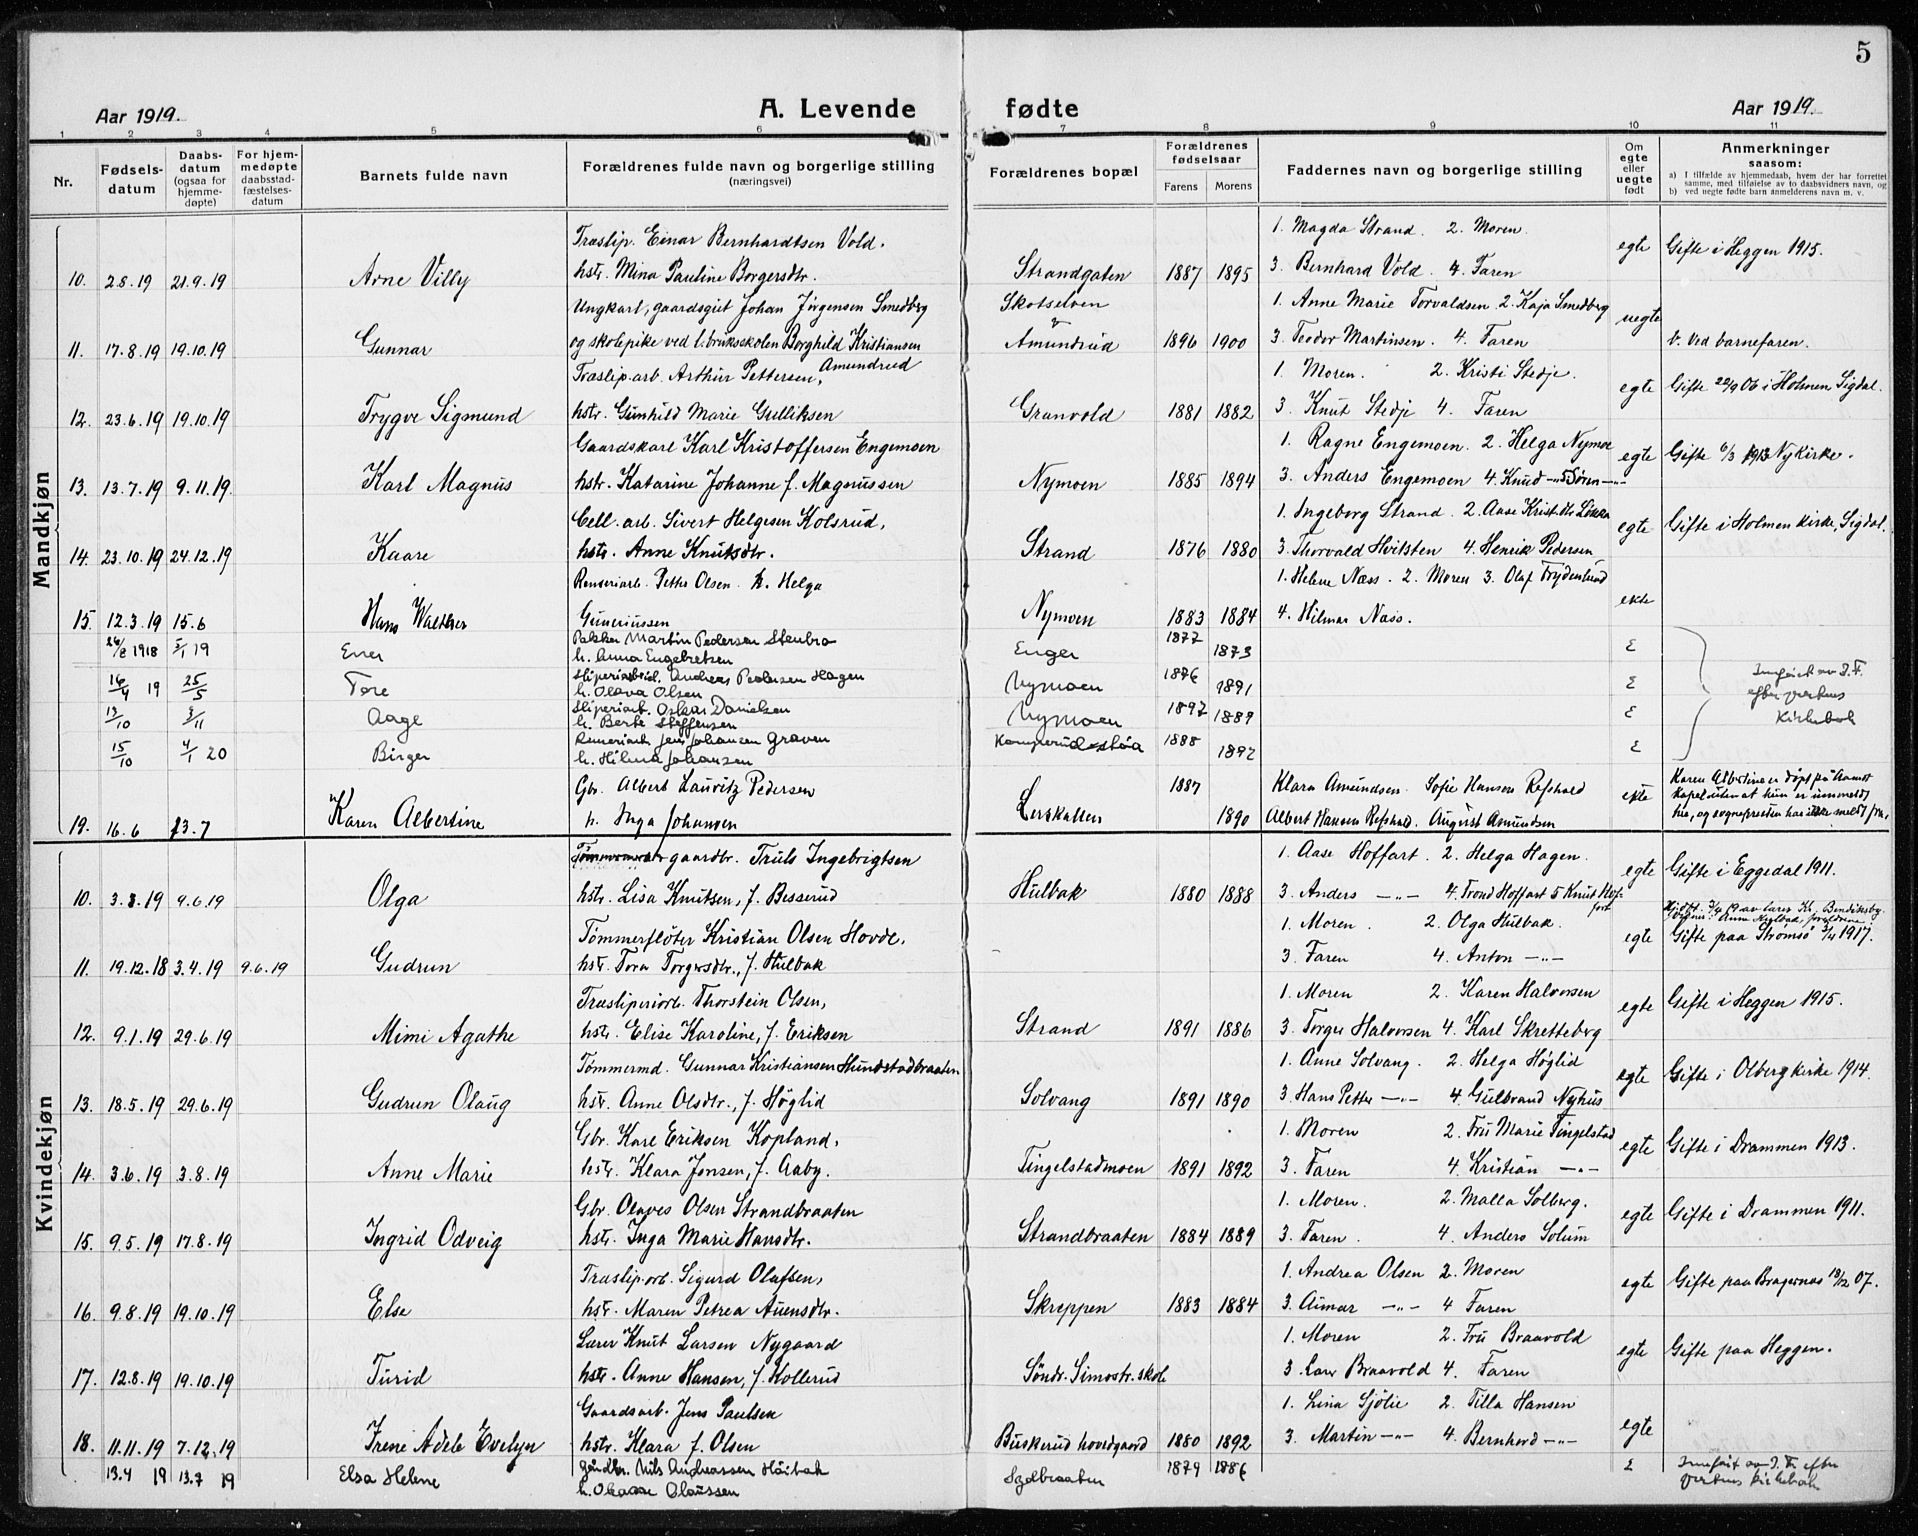 5
Aar 1919. A. Levende fødte Aar 1919.
1 2 3 4 5 6 7 8 9 10 11
Nr. Fødsels-datum Daabs-datum (ogsaa for hjemme-døpte) For hjem-medøpte daabsstad-fæstelses-datum Barnets fulde navn Forældrenes fulde navn og borgerlige stilling (næringsvei) Forældrenes bopæl Forældrenes fødselsaar Farens Morens Faddernes navn og borgerlige stilling Om egte eller uegte født Anmerkninger saasom:
a) I tilfælde av hjemmedaab, hvem der har forrettet samme, med tilføielse av to daabsvidners navn, og
b) ved uegte fødte barn anmelderens navn m. v.
Mandkjøn
Træslip. Einar Bernhardtsen Vold. 1. Magda Strand. 2. Moren.
10. 2.8.19 21.9.19 Arne Villy hstr. Mina Pauline Borgersdtr. Strandgaten 1887 1895 3. Bernhard Vold. 4. Faren egte Gifte i Heggen 1915.
Ungkarl, gaardsgut Johan Jörgensen Smedberg Skotselven 1. Anne Marie Torvaldsen 2. Kaja Smedberg
11. 17.8.19 19.10.19 Gunnar og skolepike ved l.bruksskolen Borghild Kristiansen Amundrud Amundrud 1896 1900 3. Teodor Martinsen. 4. Faren uegte b. Ved barnefaren.
Træslip.arb. Arthur Pettersen, 1. Moren. 2. Kristi Stedje.
12. 23.6.19 19.10.19 Trygve Sigmund hstr. Gunhild Marie Gulliksen Granvold 1881 1882 3. Knut Stedje 4. Faren egte Gifte 22/9 06 i Holmen Sigdal.
Gaardskarl Karl Kristoffersen Engemoen 1. Ragne Engemoen. 2. Helga Nymoe
13. 13.7.19 9.11.19. Karl Magnus hstr. Katarine Johanne f. Magnussen Nymoen 1885 1894 3. Anders Engemoen 4. Knud -"- 5 Sören -"- egte Gifte 6/3 1913 Nykirke.
Cell. arb. Sivert Helgesen Kolsrud, 1. Ingeborg Strand. 2. Aase Kristdtr Lökka
14. 23.10.19 24.12.19 Kaare hstr. Anne Knutsdtr. Strand 1876 1880 3. Thorvald Hvilsten 4. Henrik Pedersen egte Gifte i Holmen kirke, Sigdal.
Renseriarb. Petter Olsen. h. Helga 1. Helene Næss. 2. Moren 3. Olaf Frydenlund
15. 12.3.19 15.6 Hans Walther Guneriussen Nymoen 1883 1884 4. Hilmar Næss. ekte
26/8 1918 5/1 19 Einer Pakker Martin Pedersen Stenbro h. Anna Engebretsen Enger 1877 1873 E
16/4 19 25/5 Tore Sliperiarbeid. Andreas Pedersen Hagen h. Olava Olsen Nymoen 1876 1891 E Innført av I.F. efter
13/10 2/11 Aage Sliperiarb. Oskar Danielsen h. Berte Steffensen Nymoen 1897 1889 E Kirkebok
15/10 4/1 20 Birger Renseriarb Jens Johansen Graven h. Hilma Johansen Komperud-støa 1888 1892 E
Gbr. Albert Lauritz Pedersen 1887 Klara Amundsen. Sofie Hansen Refshald Karen Albertine er døpt på Aamot
19. 16.6 13.7 Karen Albertine h. Inga Johansen Lerskallen 1890 Albert Hansen Refshald. August Amundsen ekte kapel uten at hun er innmeldt her, og sognepresten har ikke meldt fra.
Kvindekjøn
gaardbr. Truls Ingebrigtsen 1. Aase Hoffart. 2. Helga Hagen.
10. 3.3.19 9.6.19 Olga hstr. Lisa Knutsen, f. Besserud Hulbak 1880 1888 3. Anders -"- 4. Trond Hoffart 5 Knut Hoffart egte Gifte i Eggedal 1911.
Tömmerflöter Kristian Olsen Hovde. 1. Moren. 2. Olga Hulbak. Hjdpt. 3/4 19 av lærer Kr. Bendiksby. Anne Hulbak, foreldrene
11. 19.12.18 3.4.19 9.6.19 Gudrun hstr. Tora Torgersdtr., f. Hulbak 3. Faren 4. Anton -"- egte Gifte paa Strømsö 3/4 1917.
Træsliperiarb. Thorstein Olsen, 1. Moren 2. Karen Halvorsen
12. 9.1.19 29.6.19 Mimi Agathe hstr. Elise Karoline, f. Eriksen Strand 1891 1886 3. Torger Halvorsen 4. Karl Skretteberg egte Gifte i Heggen 1915.
Tömmermd. Gunnar Kristiansen Hundstadbraaten 1. Anne Solvang. 2. Helga Höglid
13. 18.5.19 29.6.19 Gudrun Olaug hstr. Anne Olsdtr., f. Höglid Solvang 1891 1890 3. Hans Petter -"- 4. Gulbrand Nyhus egte Gifte i Olberg kirke 1914.
Gbr. Karl Eriksen Kopland, 1. Moren 2. Fru Marie Tingelstad
14. 3.6.19 3.8.19 Anne Marie hstr. Klara Jonsen, f. Aaby. Tingelstadmoen 1891 1892 3. Faren 4. Kristian -"- egte Gifte i Drammen 1913.
Gbr. Olaves Olsen Strandbraaten 1. Moren. 2. Malla Solberg.
15. 9.5.19 17.8.19 Ingrid Odveig hstr. Inga Marie Hansdtr. Strandbraaten 1884 1889 3. Faren. 4. Anders Solum egte Gifte i Drammen 1911.
Træslip.arb. Sigurd Olafsen, 1. Andrea Olsen 2. Moren
16. 9.8.19 19.10.19 Else hstr. Maren Petrea Auensdtr. Skreppen 1883 1884 3. Aimar -"- 4 Faren egte Gifte paa Bragernes 18/12 07.
Lærer Knut Larsen Nygaard 1. Moren 2. Fru Braavold
17. 12.8.19 19.10.19 Turid hstr. Anne Hansen, f. Kollerud Söndr. Simostr. skole 3. Lars Braavold 4. Faren egte Gifte paa Heggen.
Gaardsarb. Jens Paulsen 1. Lina Sjölie 2. Tilla Hansen
18. 11.11.19 7.12.19 Irene Adele Evelyn hstr. Klara f. Olsen Buskerud hovedgaard 1880 1892 3. Martin -"- 4. Bernhard -"- egte
13.4 19 13.7 19 Elsa Helene gårdbr. Nils Andreassen Høibak h. Olassen Selbraaten 1879 1886 E Innført av I. F. efter kirkebok